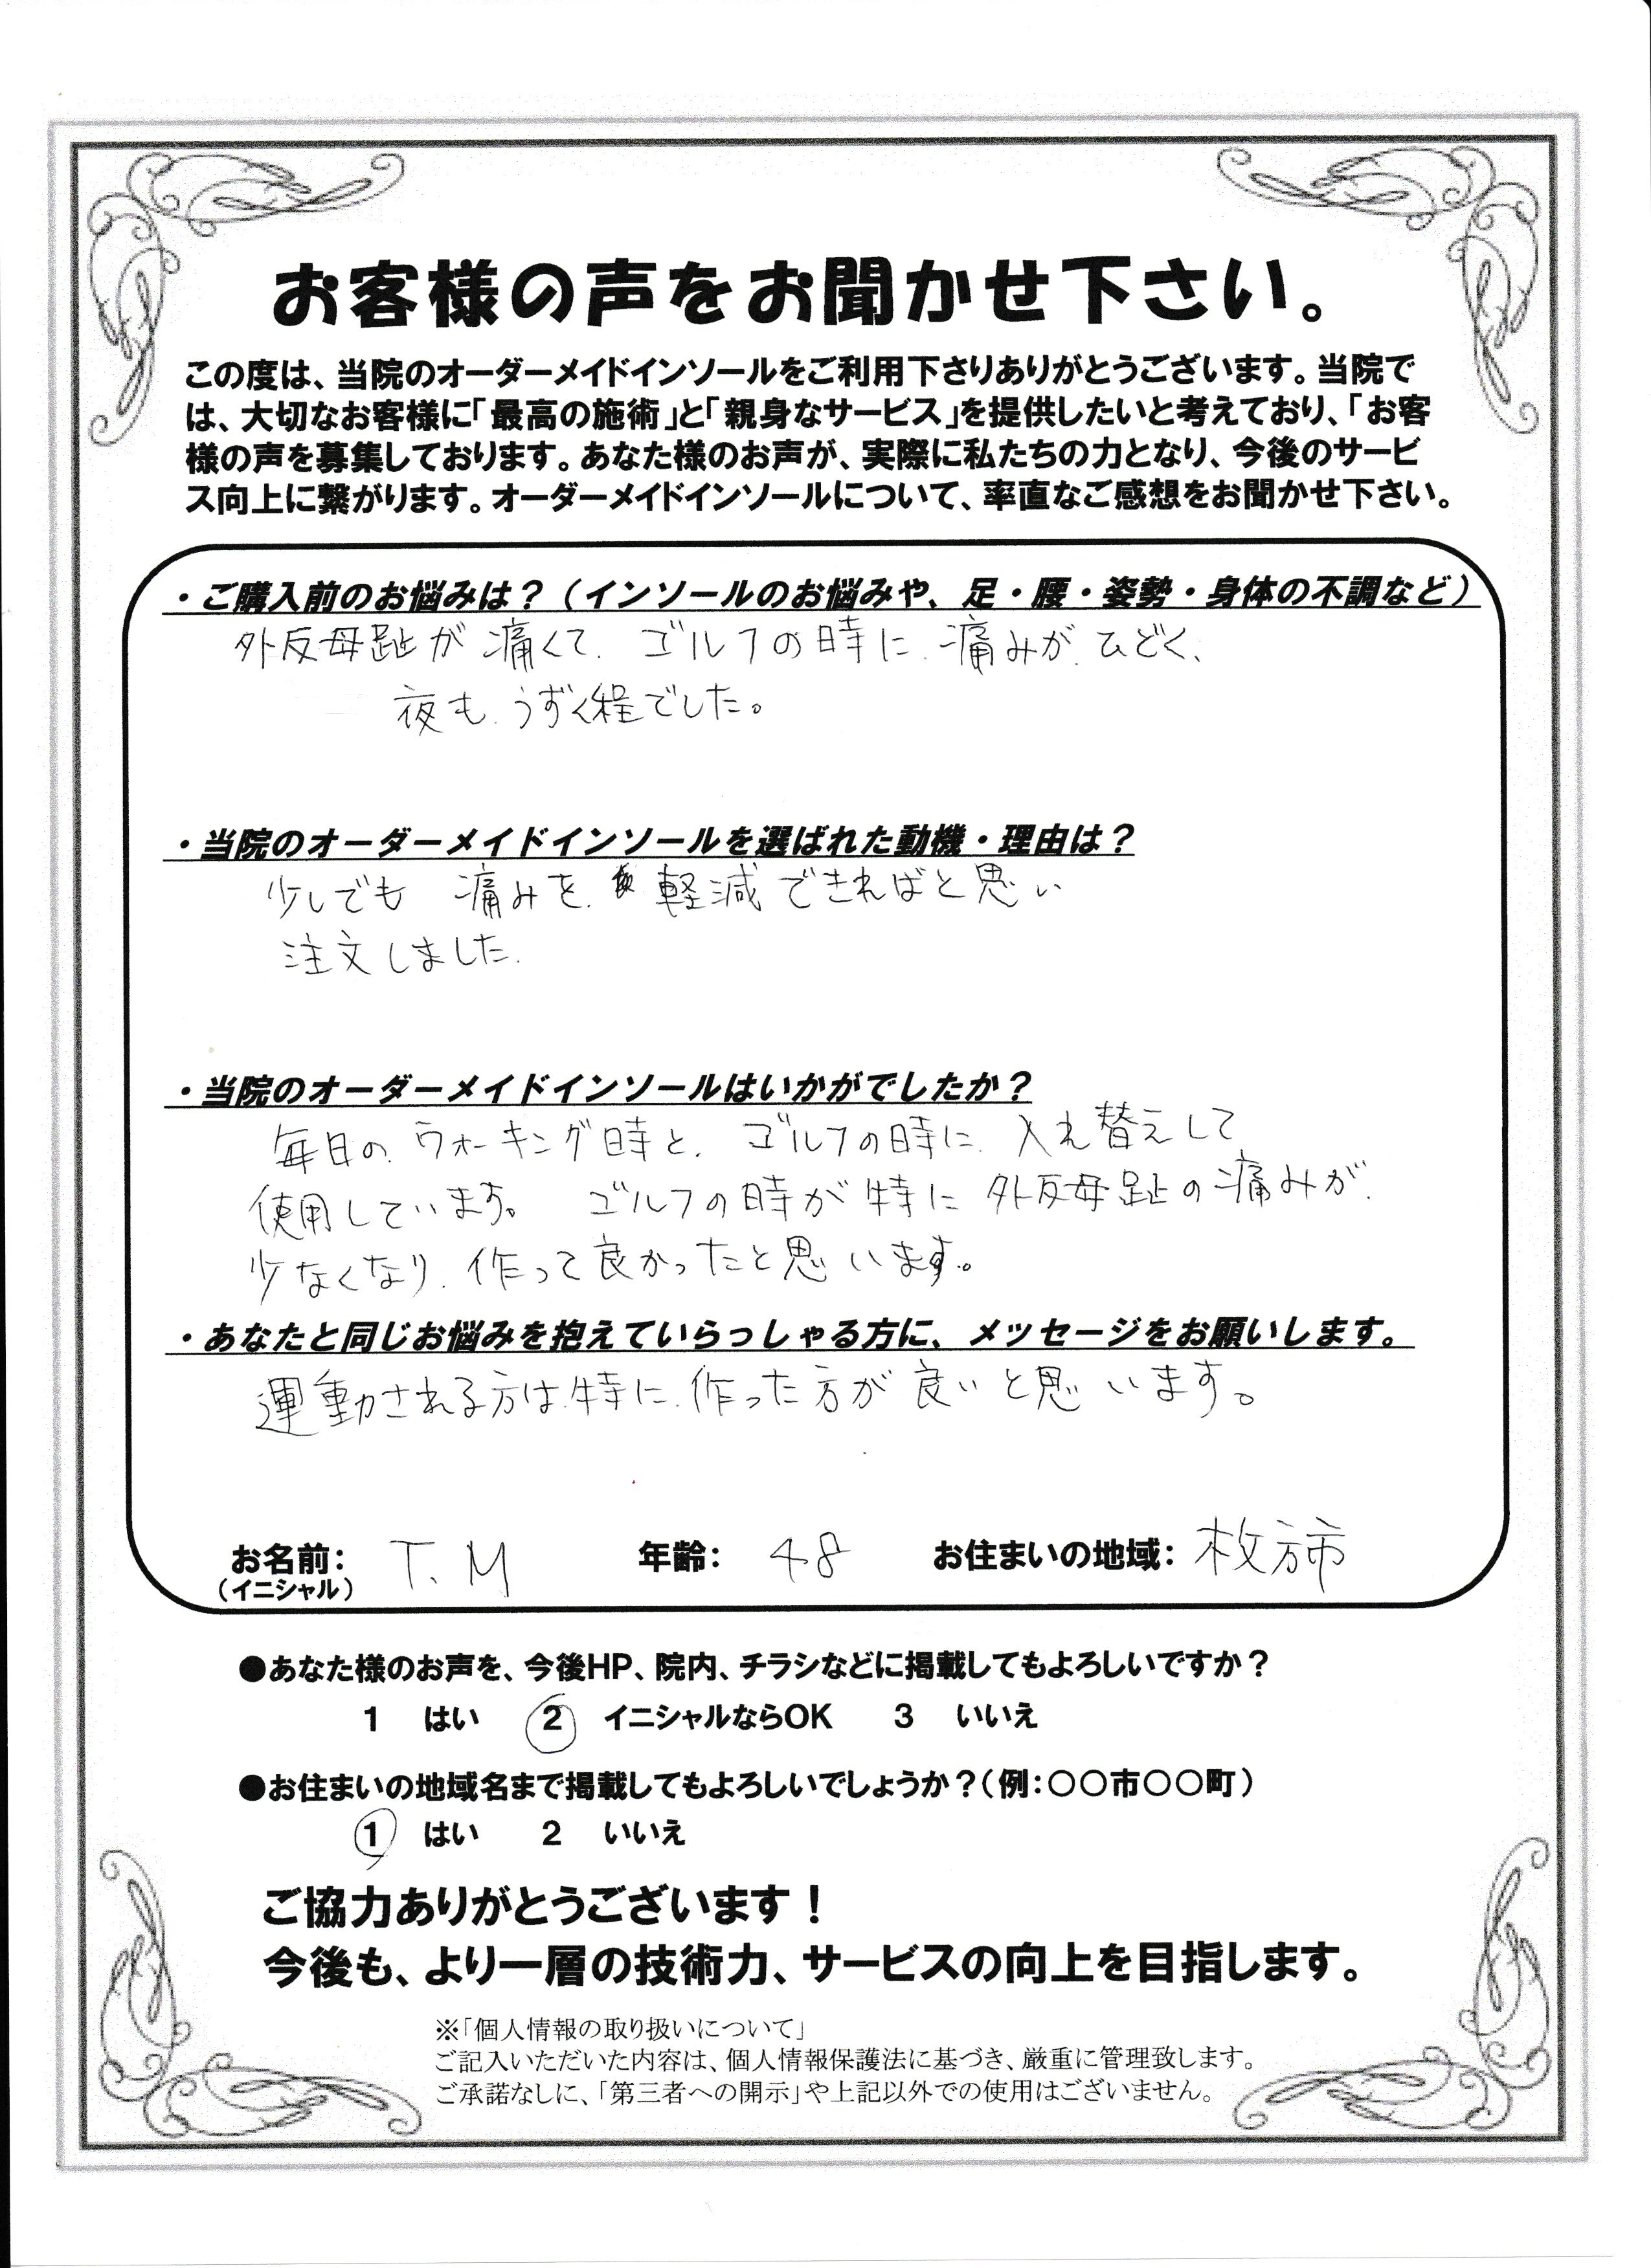 お客様の声をお聞かせ下さい。
この度は、当院のオーダーメイドインソールをご利用下さりありがとうございます。当院で
は、大切なお客様に「最高の施術」と「親身なサービス」を提供したいと考えており、「お客
様の声を募集しております。あなた様のお声が、実際に私たちの力となり、今後のサービ
ス向上に繋がります。オーダーメイドインソールについて、率直なご感想をお聞かせ下さい。
・ご購入前のお悩みは？（インソールのお悩みや、足・腰・姿勢・身体の不調など）
外反母趾が痛くて、ゴルフの時に、痛みが、ひどく、
夜も、うずく程でした。
・当院のオーダーメイドインソールを選ばれた動機・理由は？
少しでも 痛みを、軽減できればと思い
注文しました.
・当院のオーダーメイドインソールはいかがでしたか？
毎日の、ウォーキング時と、ゴルフの時に、入れ替えして
使用しています。 ゴルフの時が特に 外反母趾の痛みが、
少なくなり、作って良かったと思います。
・あなたと同じお悩みを抱えていらっしゃる方に、メッセージをお願いします。
運動される方は、特に、作った方が良いと思います。
お名前： T.M 年齢： 48 お住まいの地域： 枚方市
（イニシャル）
●あなた様のお声を、今後HP、院内、チラシなどに掲載してもよろしいですか？
1 はい 2 イニシャルならOK 3 いいえ
●お住まいの地域名まで掲載してもよろしいでしょうか？（例：○○市○○町）
1 はい 2 いいえ
ご協力ありがとうございます！
今後も、より一層の技術力、サービスの向上を目指します。
※「個人情報の取り扱いについて」
ご記入いただいた内容は、個人情報保護法に基づき、厳重に管理致します。
ご承諾なしに、「第三者への開示」や上記以外での使用はございません。